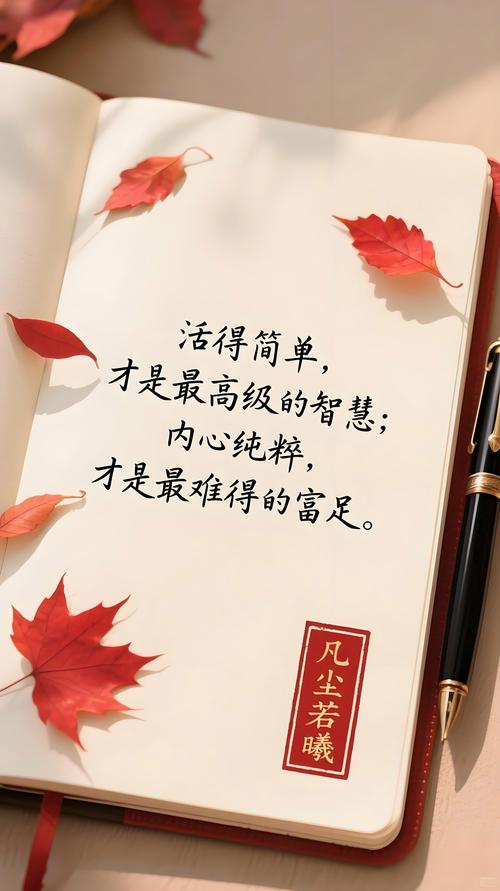 活得简单，
才是最高级的智慧；
内心纯粹，
才是最难得的富足。
凡尘若曦